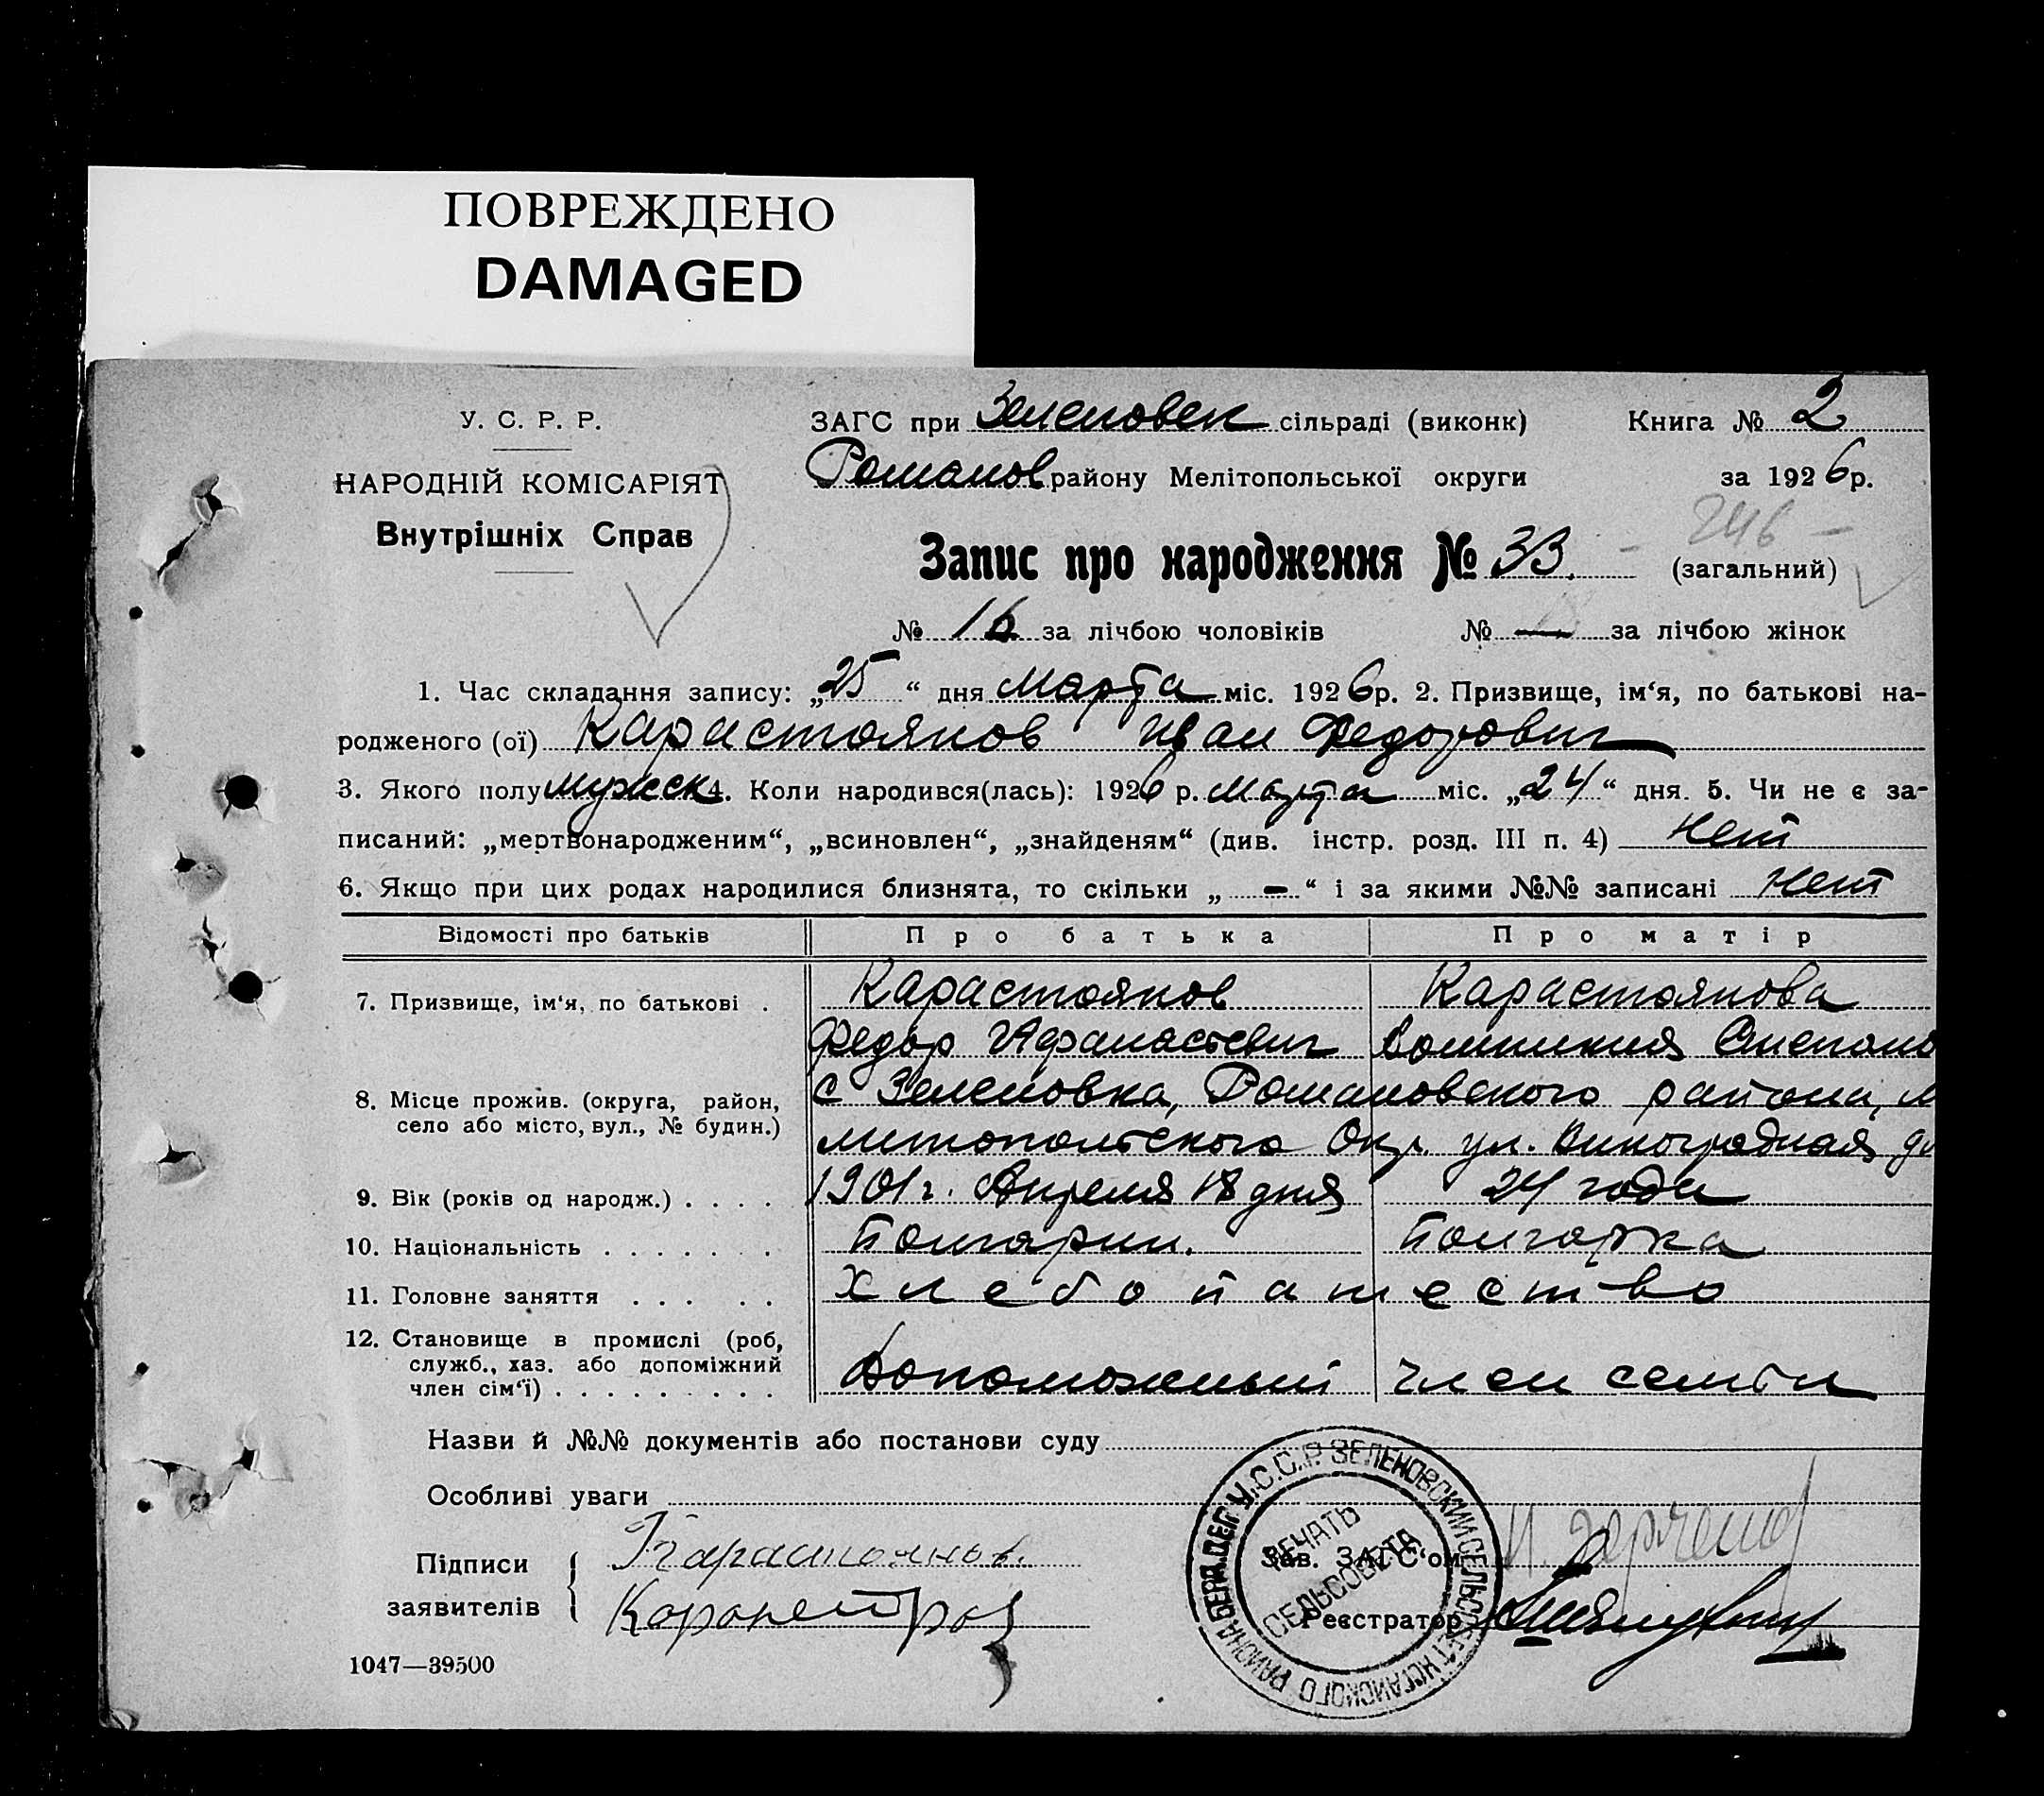 ПОВРЕЖДЕНО
DAMAGED
У. С. Р. Р.
НАРОДНІЙ КОМІСАРІЯТ
Внутрішніх Справ
ЗАГС при Зеленовск сільраді (виконк) Книга № 2
Романов району Мелітопольської округи за 1926 р.
246
Запис про народження № 33. (загальний)
№ 16 за лічбою чоловіків № — за лічбою жінок
1. Час складання запису: „25“ дня Марта міс. 1926 р. 2. Призвище, ім‘я, по батькові на-
родженого (ої) Карастоянов Иван Федорович
3. Якого полу мужск 4. Коли народився(лась): 1926 р. Марта міс. „24“ дня. 5. Чи не є за-
писаний: „мертвонародженим“, „всиновлен“, „знайденям“ (див. інстр. розд. III п. 4) Нет
6. Якщо при цих родах народилися близнята, то скільки „ — “ і за якими №№ записані Нет
Відомості про батьків Про батька Про матір
7. Призвище, ім‘я, по батькові . Карастоянов Карастоянова
Федор Афанасьевич Степано
8. Місце прожив. (округа, район, село або місто, вул., № будин.) с Зеленовка, Романовского района, М
литопольского Окр. ул. Виноградная д
9. Вік (років од народж.) . . . . 1901 г. Апреля 18 дня 24 года
10. Національність . . . . . . . Болгарин. Болгарка
11. Головне заняття . . . . . Хлебопашество
12. Становище в промислі (роб, служб., хаз. або допоміжний член сім‘ї) . . . . . . . . . Допоможный член семьи
Назви й №№ документів або постанови суду
Особливі уваги
Підписи заявителів
Карастоянов.
Зав. ЗАГС‘ом
Реєстратор
У.С.С.Р. ЗЕЛЕНОВСКИЙ СЕЛЬСОВЕТ НОГАЙСКОГО РАЙОНА БЕРД.ДЕП.
ПЕЧАТЬ
СЕЛЬСОВЕТА
1047—39500